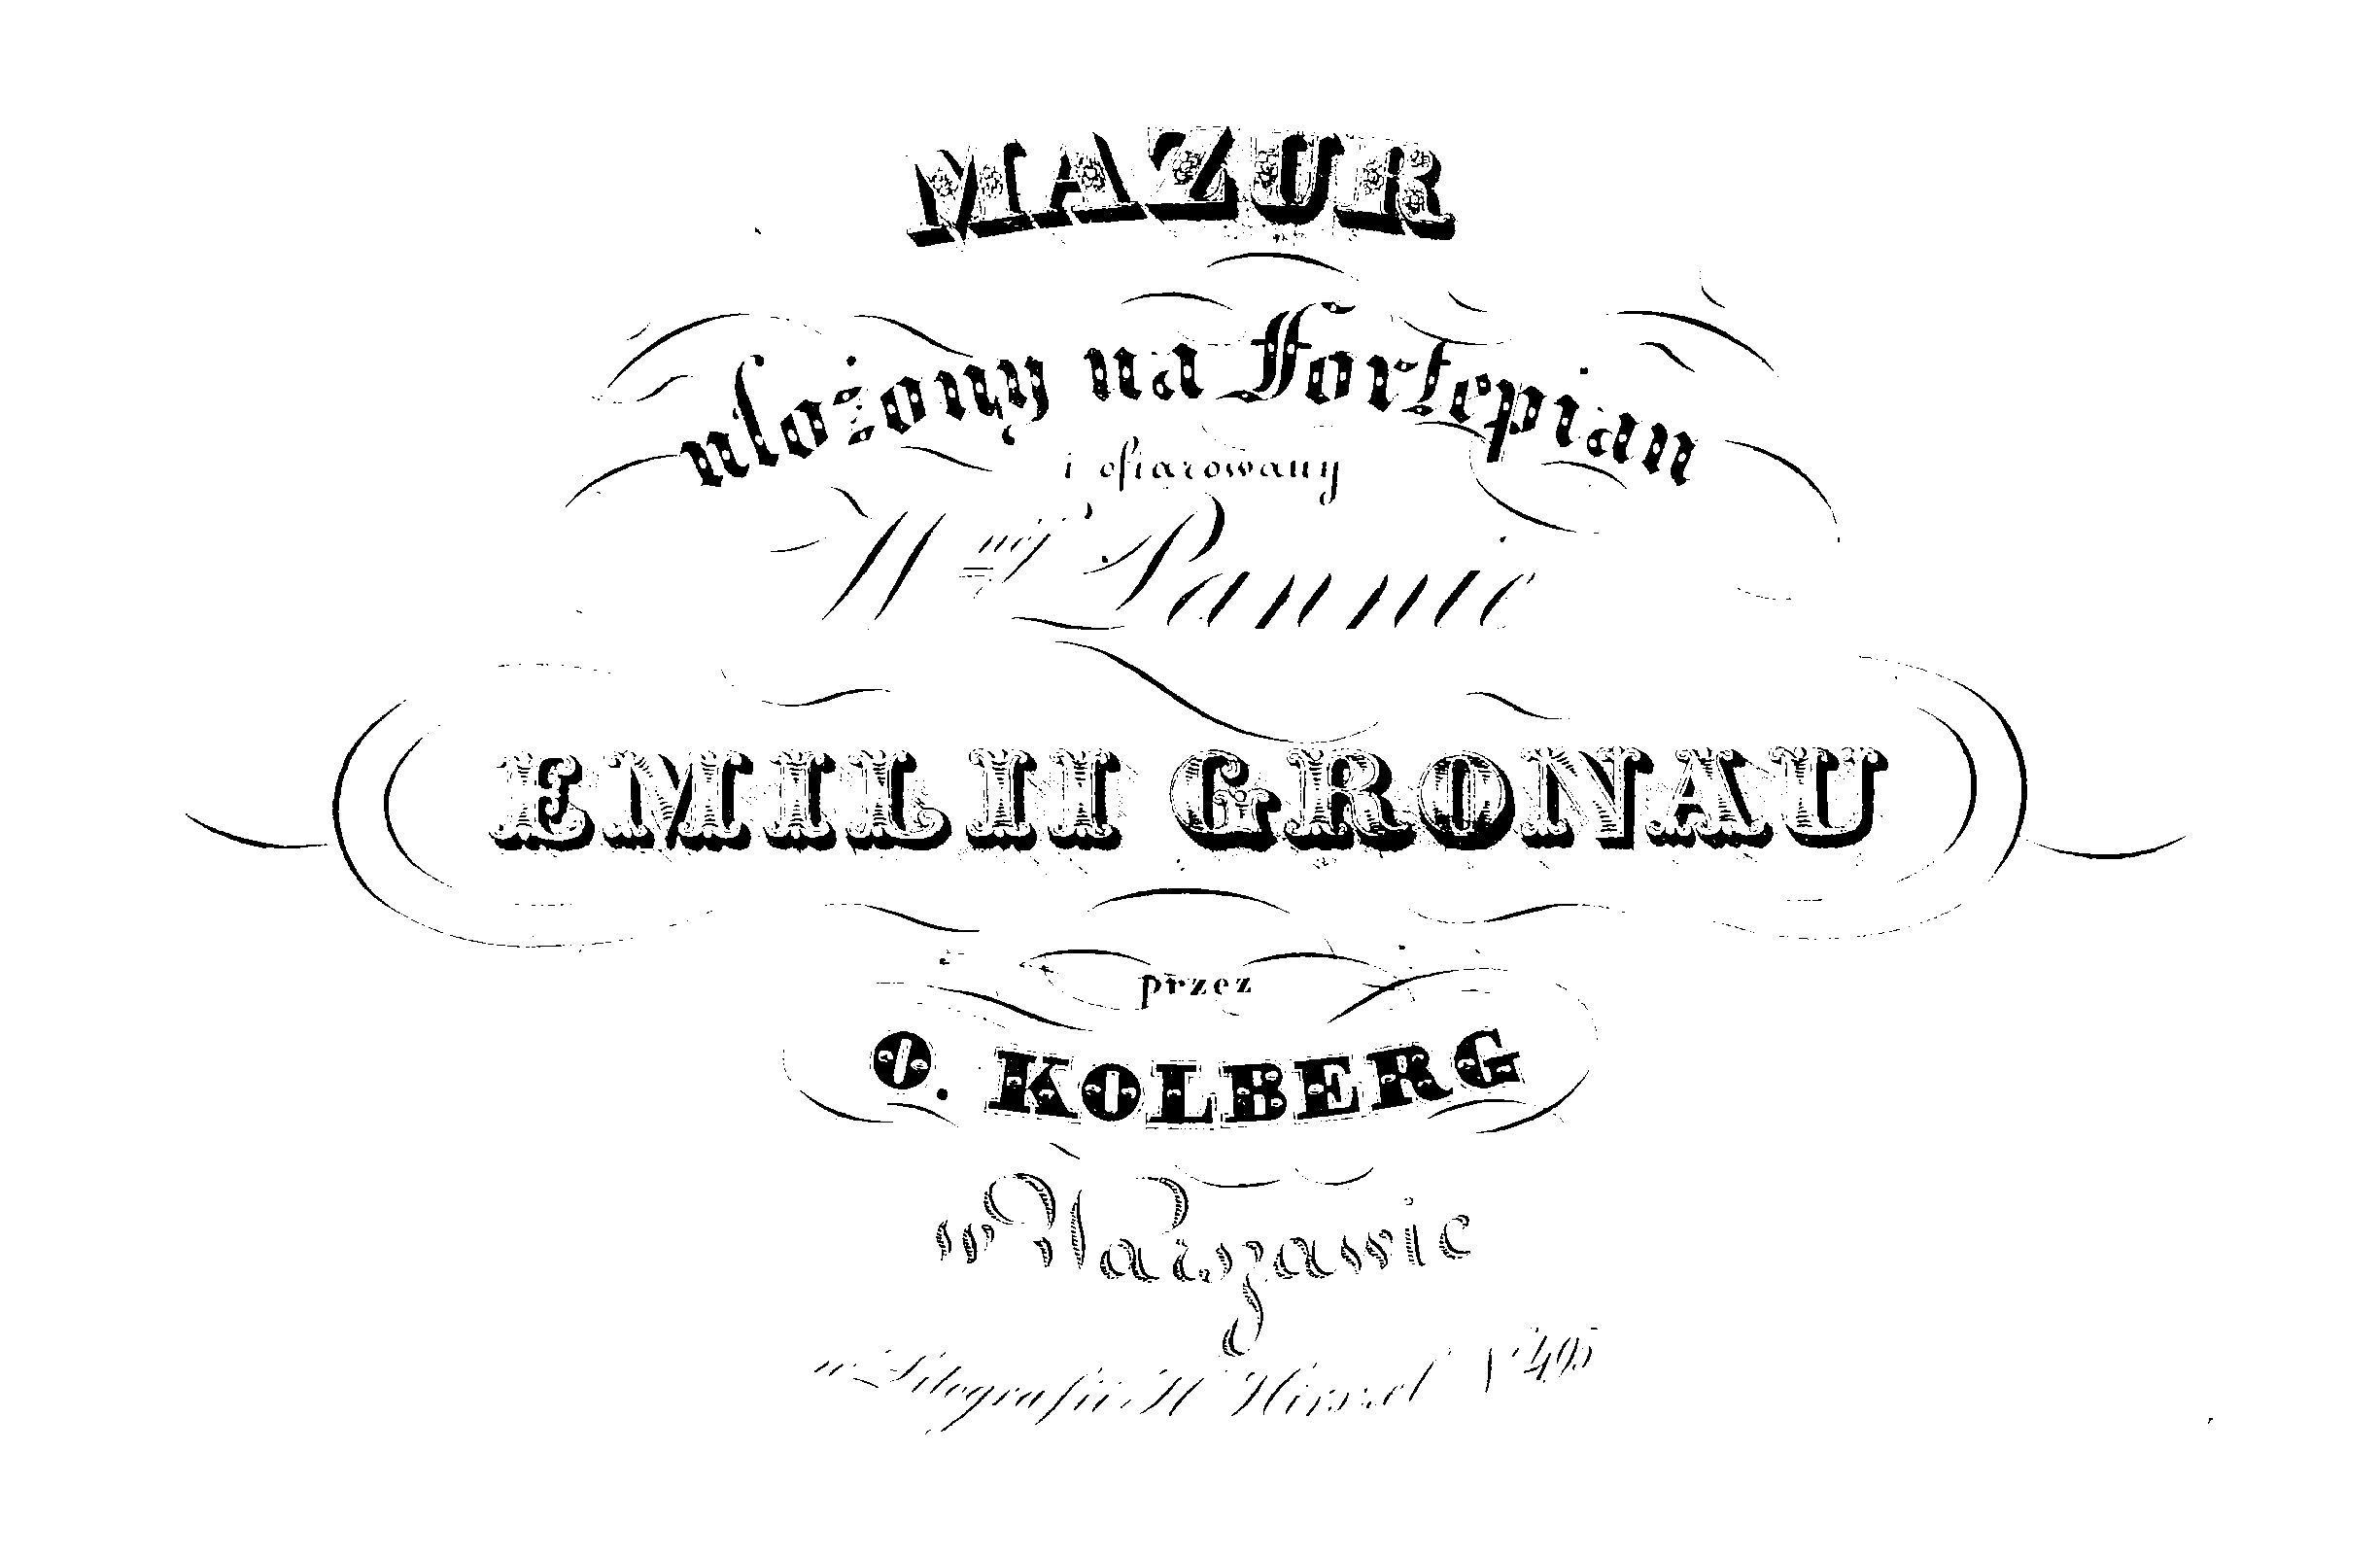 MAZUR
ułożony na Fortepian
i ofiarowany
Wnéj Pannie
EMILII GRONAU
przez
O. KOLBERG
w Warszawie
w Litografii H Hirszel N 495